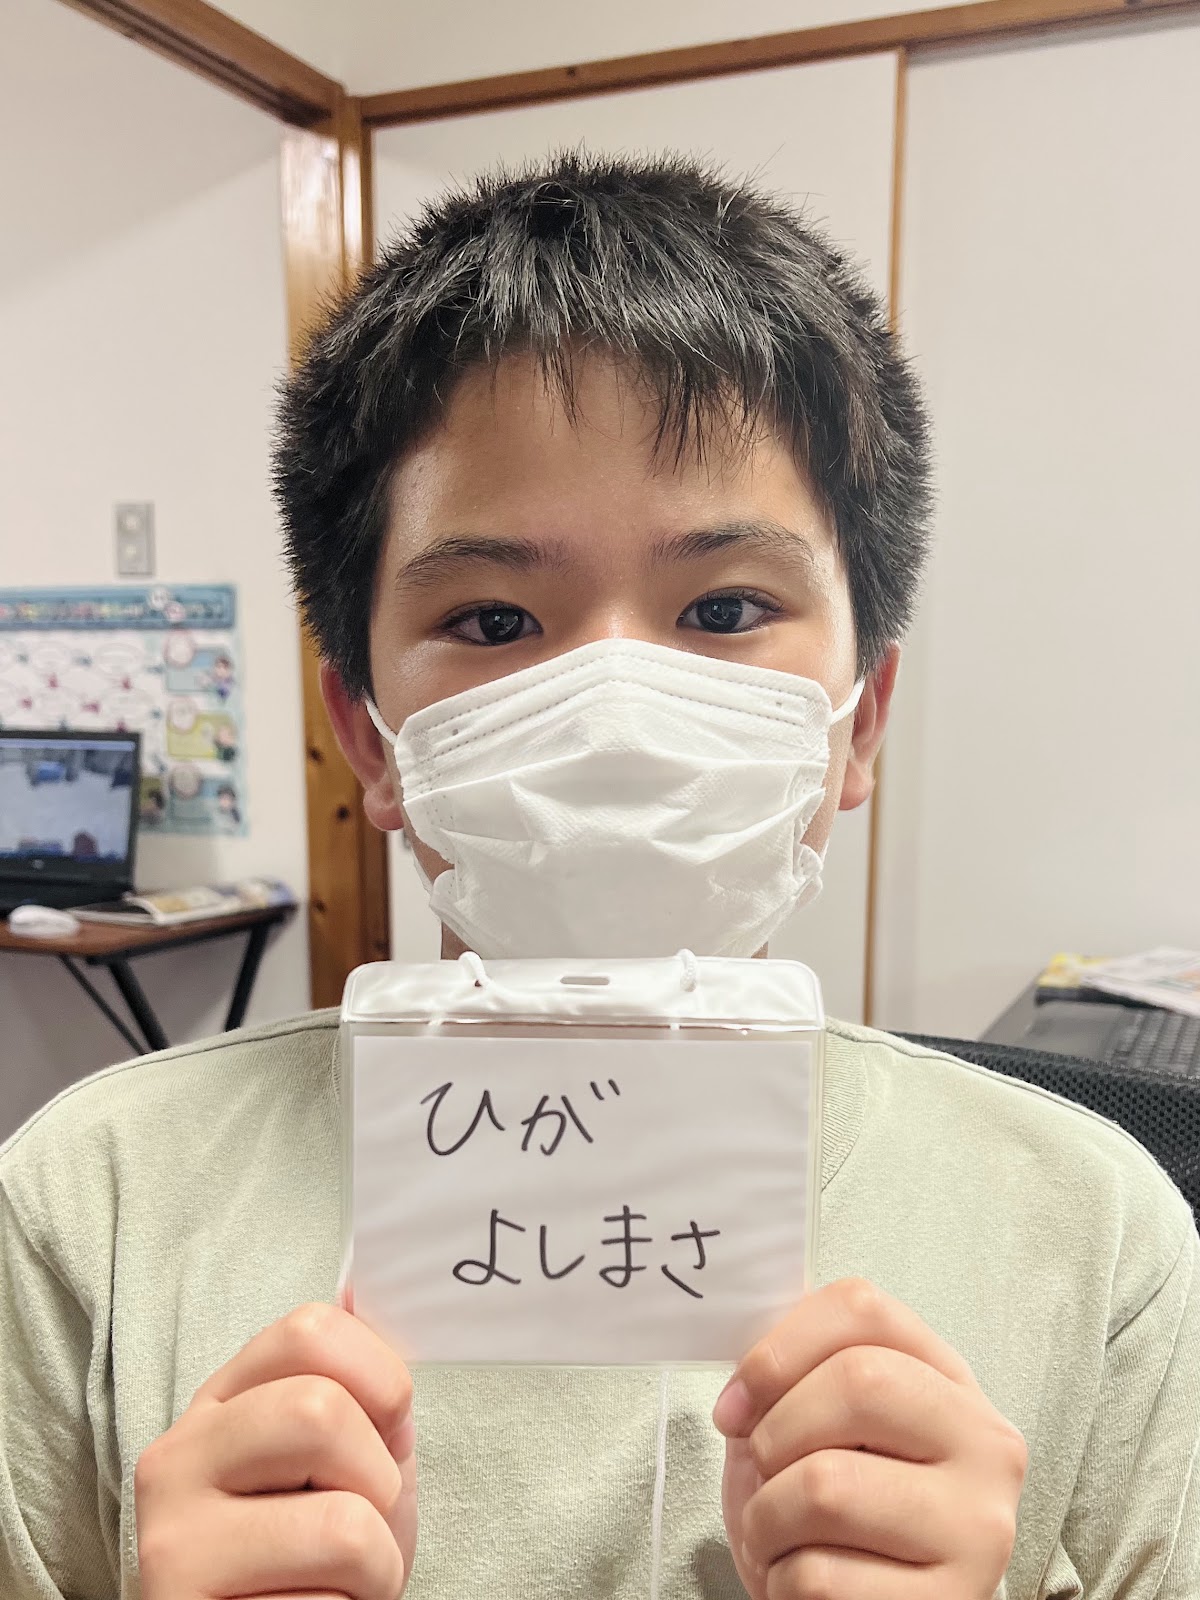 ひが
よしまさ